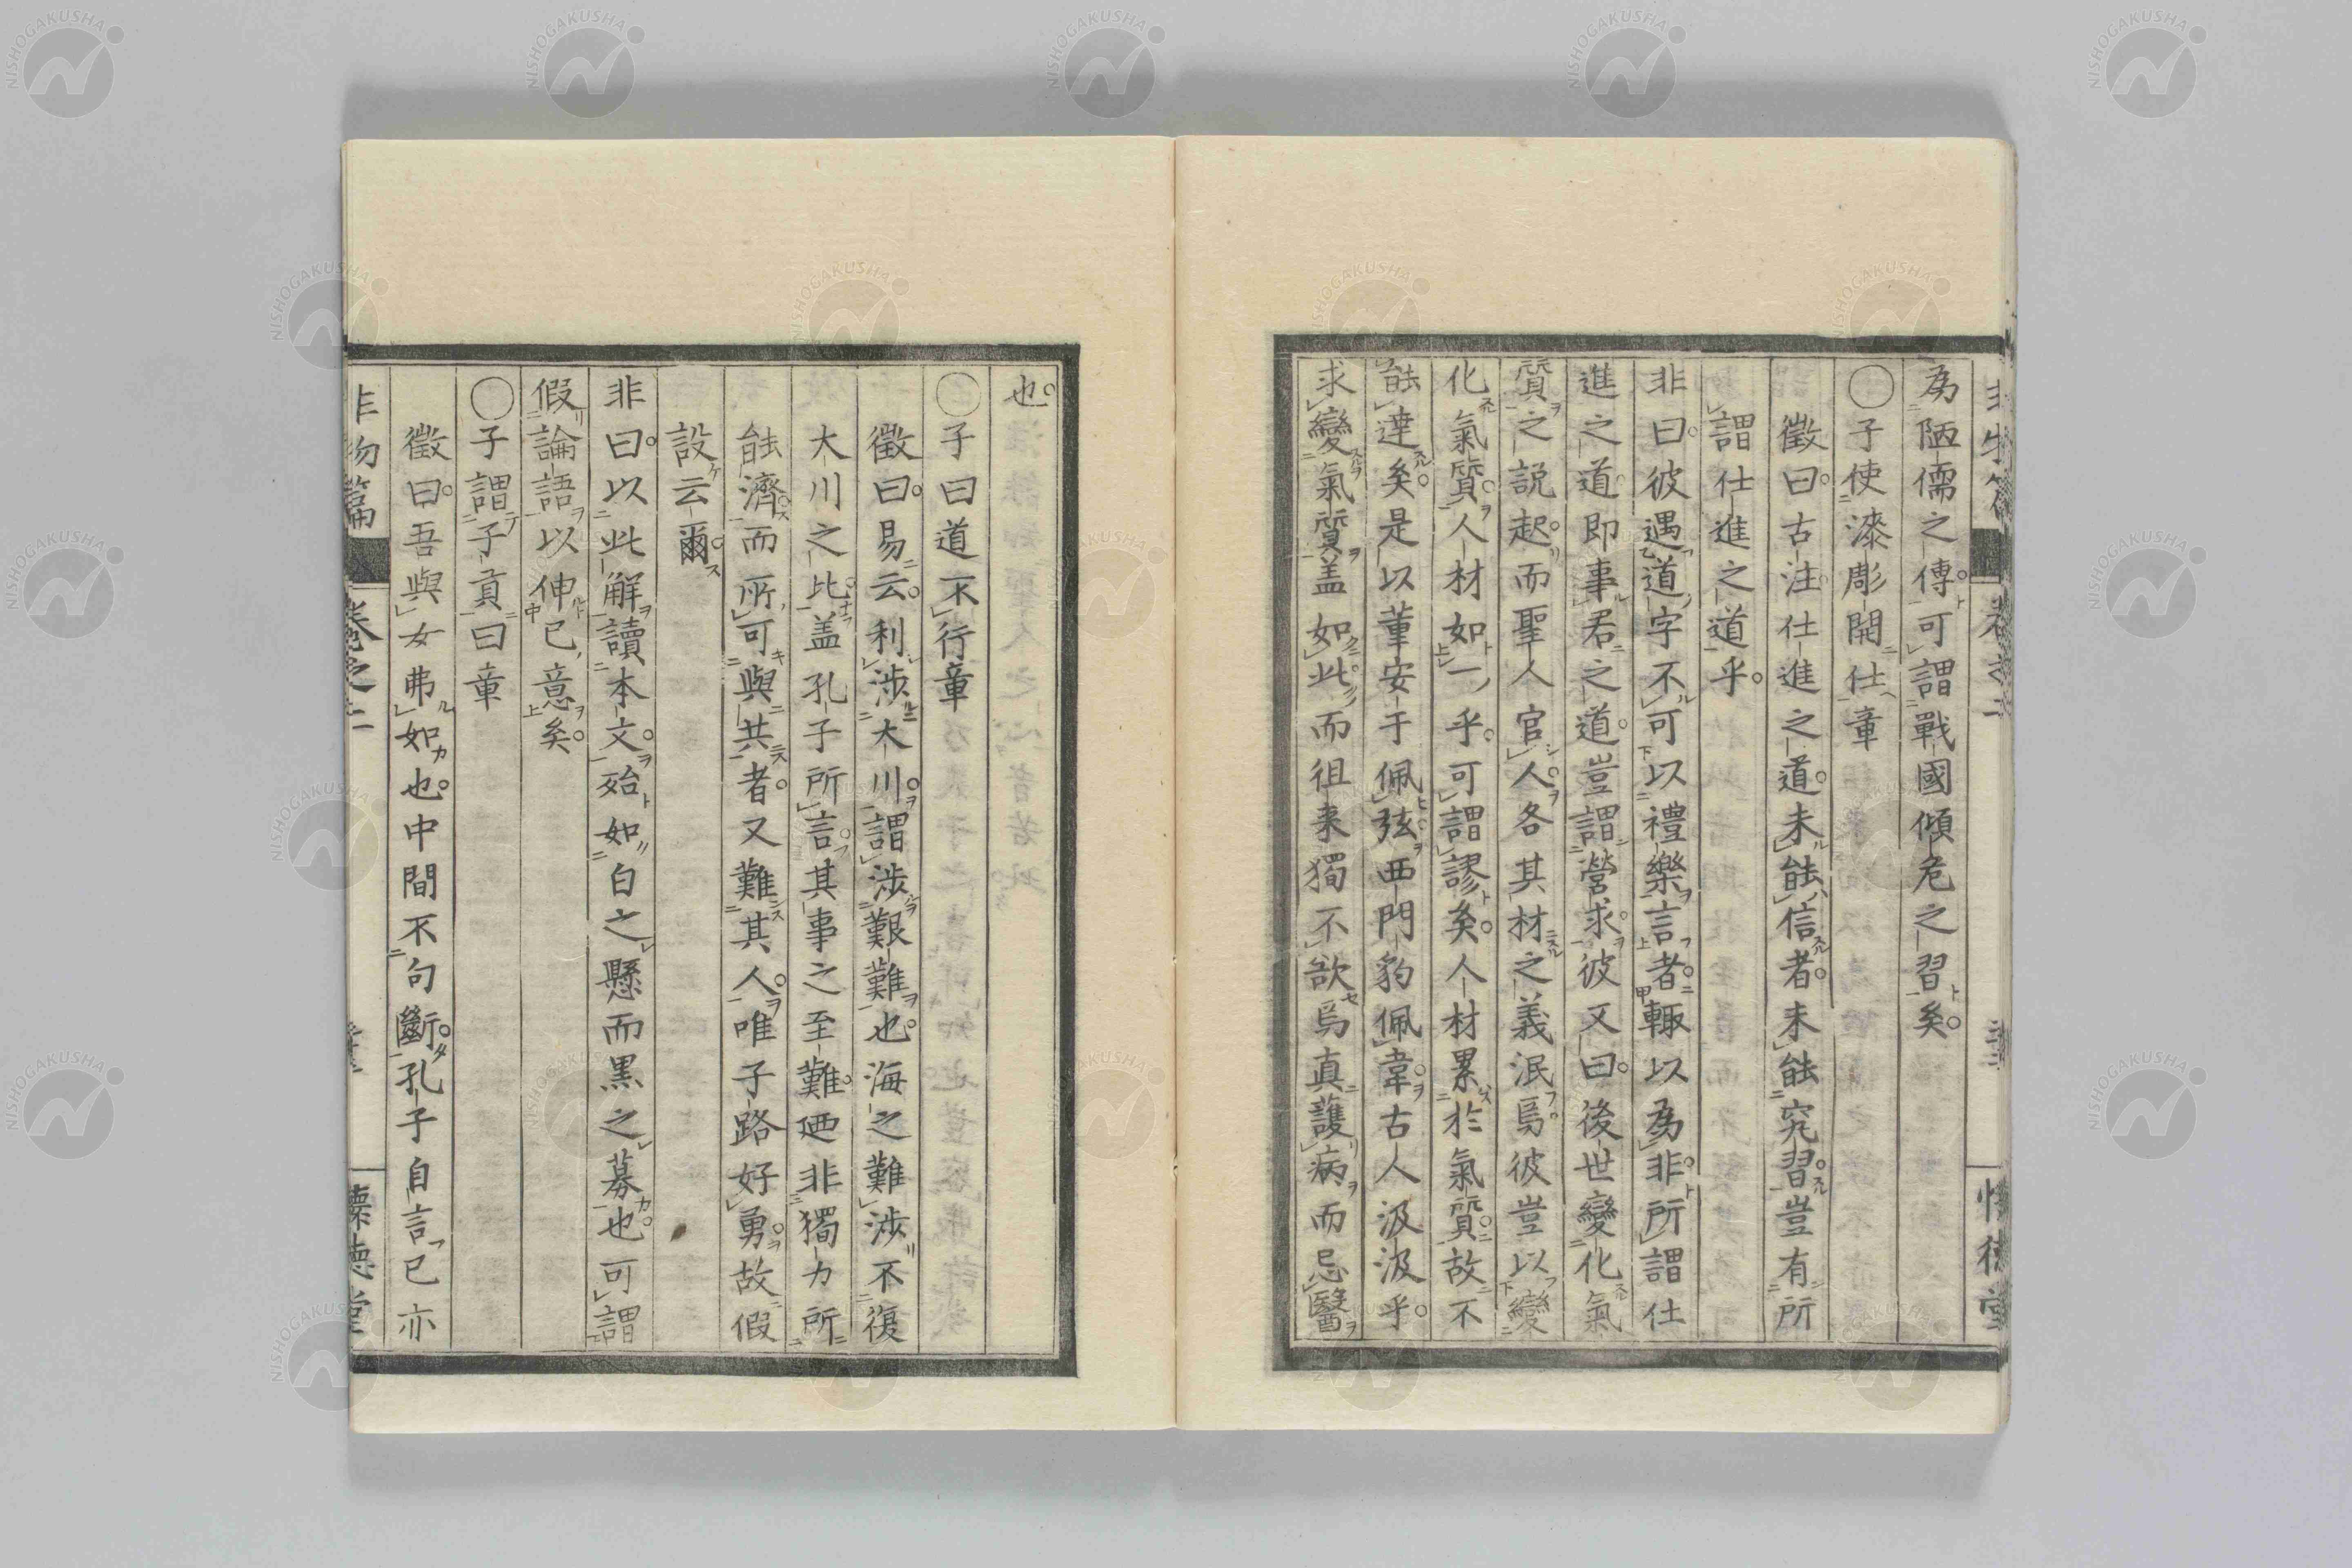 為陋儒之傳可謂戰國傾危之習矣
〇子使漆彫開仕章
徵曰古注仕進之道未能信者未能究習豈有所
謂仕進之道乎
非曰彼遇道字不可以禮樂言者輙以為非所謂仕
進之道即事君之道豈謂營求彼又曰後世變化氣
質之説起而聖人官人各其材之義泯焉彼豈以變
化氣質人材如一乎可謂謬矣人材累於氣質故不
能達矣是以董安于佩弦西門豹佩韋古人汲汲乎
求變氣質盖如此而徂来獨不欲焉真護病而忌醫
也
〇子曰道不行章
徵曰易云利涉大川謂涉艱難也海之難涉不復
大川之比盖孔子所言其事之至難廼非獨力所
能濟而所可與共者又難其人唯子路好勇故假
設云爾
非曰以此解讀本文殆如白之懸而黒之募也可謂
假論語以伸己意矣
〇子謂子貢曰章
徵曰吾與女弗如也中間不句斷孔子自言己亦
非物篇
卷之二
懐徳堂
NISHOGAKUSHA